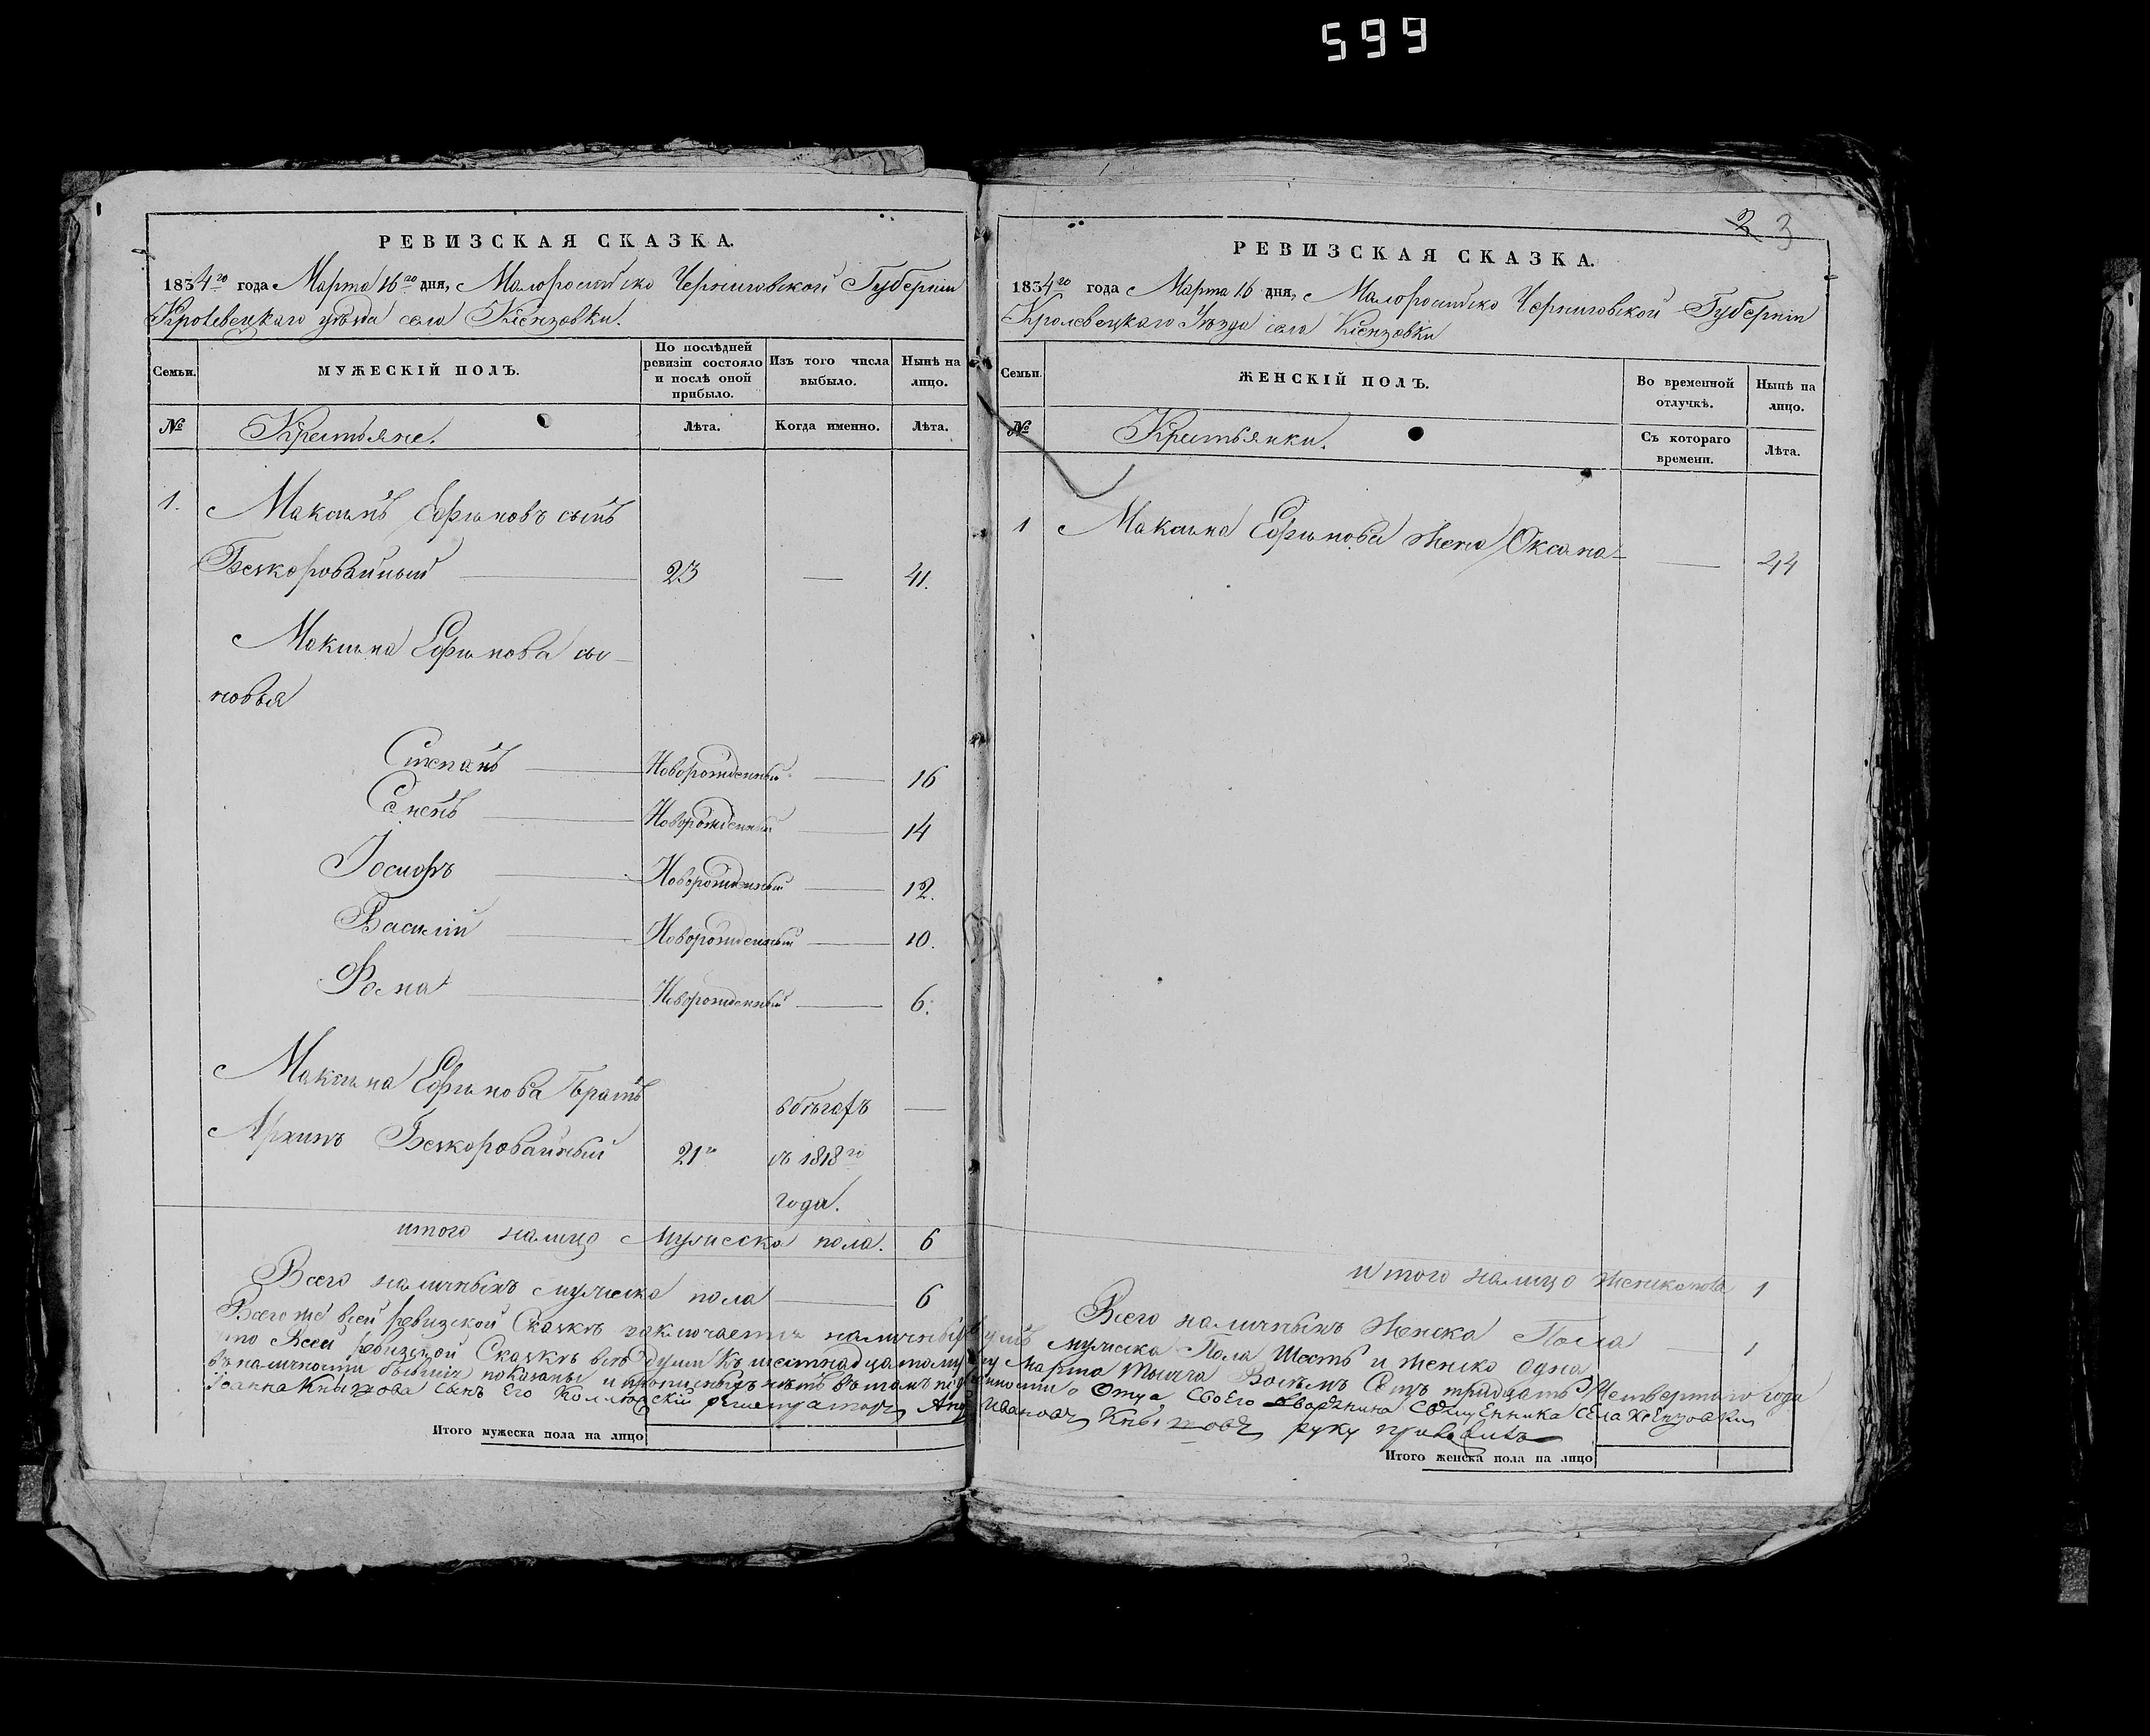 599
РЕВИЗСКАЯ СКАЗКА.
1834го года Марта 16го дня, Малоросийско Черниговской Губернии
Кролевецкаго уезда села
МУЖЕСКІЙ ПОЛЪ.
Семьи.
По послѣдней ревизіи состояло и послѣ оной прибыло.
Изъ того числа выбыло.
Нынѣ на лицо.
№
Крестьяне.
Лѣта.
Когда именно.
Лѣта.
1. Максимъ Ефимовъ сынъ
Безкоровайный — 23 — 41.
Максима Ефимова сы-
новья
Степанъ — Новорожденный — 16
Семенъ — Новорожденный — 14
Іосифъ — Новорожденный — 12.
Василій — Новорожденный — 10.
Фома — Новорожденный — 6.
Максима Ефимова братъ
Архипъ Безкоровайный 21го в бѣгахъ съ 1818го года. —
итого налицо мужеска пола. 6
Всего наличныхъ мужеска пола — 6
23
РЕВИЗСКАЯ СКАЗКА.
1834го года Марта 16 дня, Малоросийско Черниговской Губернии
Кролевецкаго Уезда села
Семьи.
ЖЕНСКІЙ ПОЛЪ.
Во временной отлучкѣ.
Нынѣ на лицо.
№
Крестьянки.
Съ котораго времени.
Лѣта.
1 Максима Ефимова жена Оксана — 44
итого налицо женска пола 1
Всего наличныхъ женска Пола — 1
Всего же всей ревизской Сказкѣ заключается наличныхъ душъ мужеска Пола Шесть и женско одна
что Всей ревизской Сказкѣ все души къ шестнадцатому Марта Тысяча Восѣмъ Сотъ тридцать Четвертого года
въ наличности бывшіе показаны и прописныхъ нѣтъ в томъ Отца своего дворянина священника села
сынъ его регистраторъ Ивановъ руку приложилъ
Итого мужеска пола на лицо
Итого женска пола на лицо